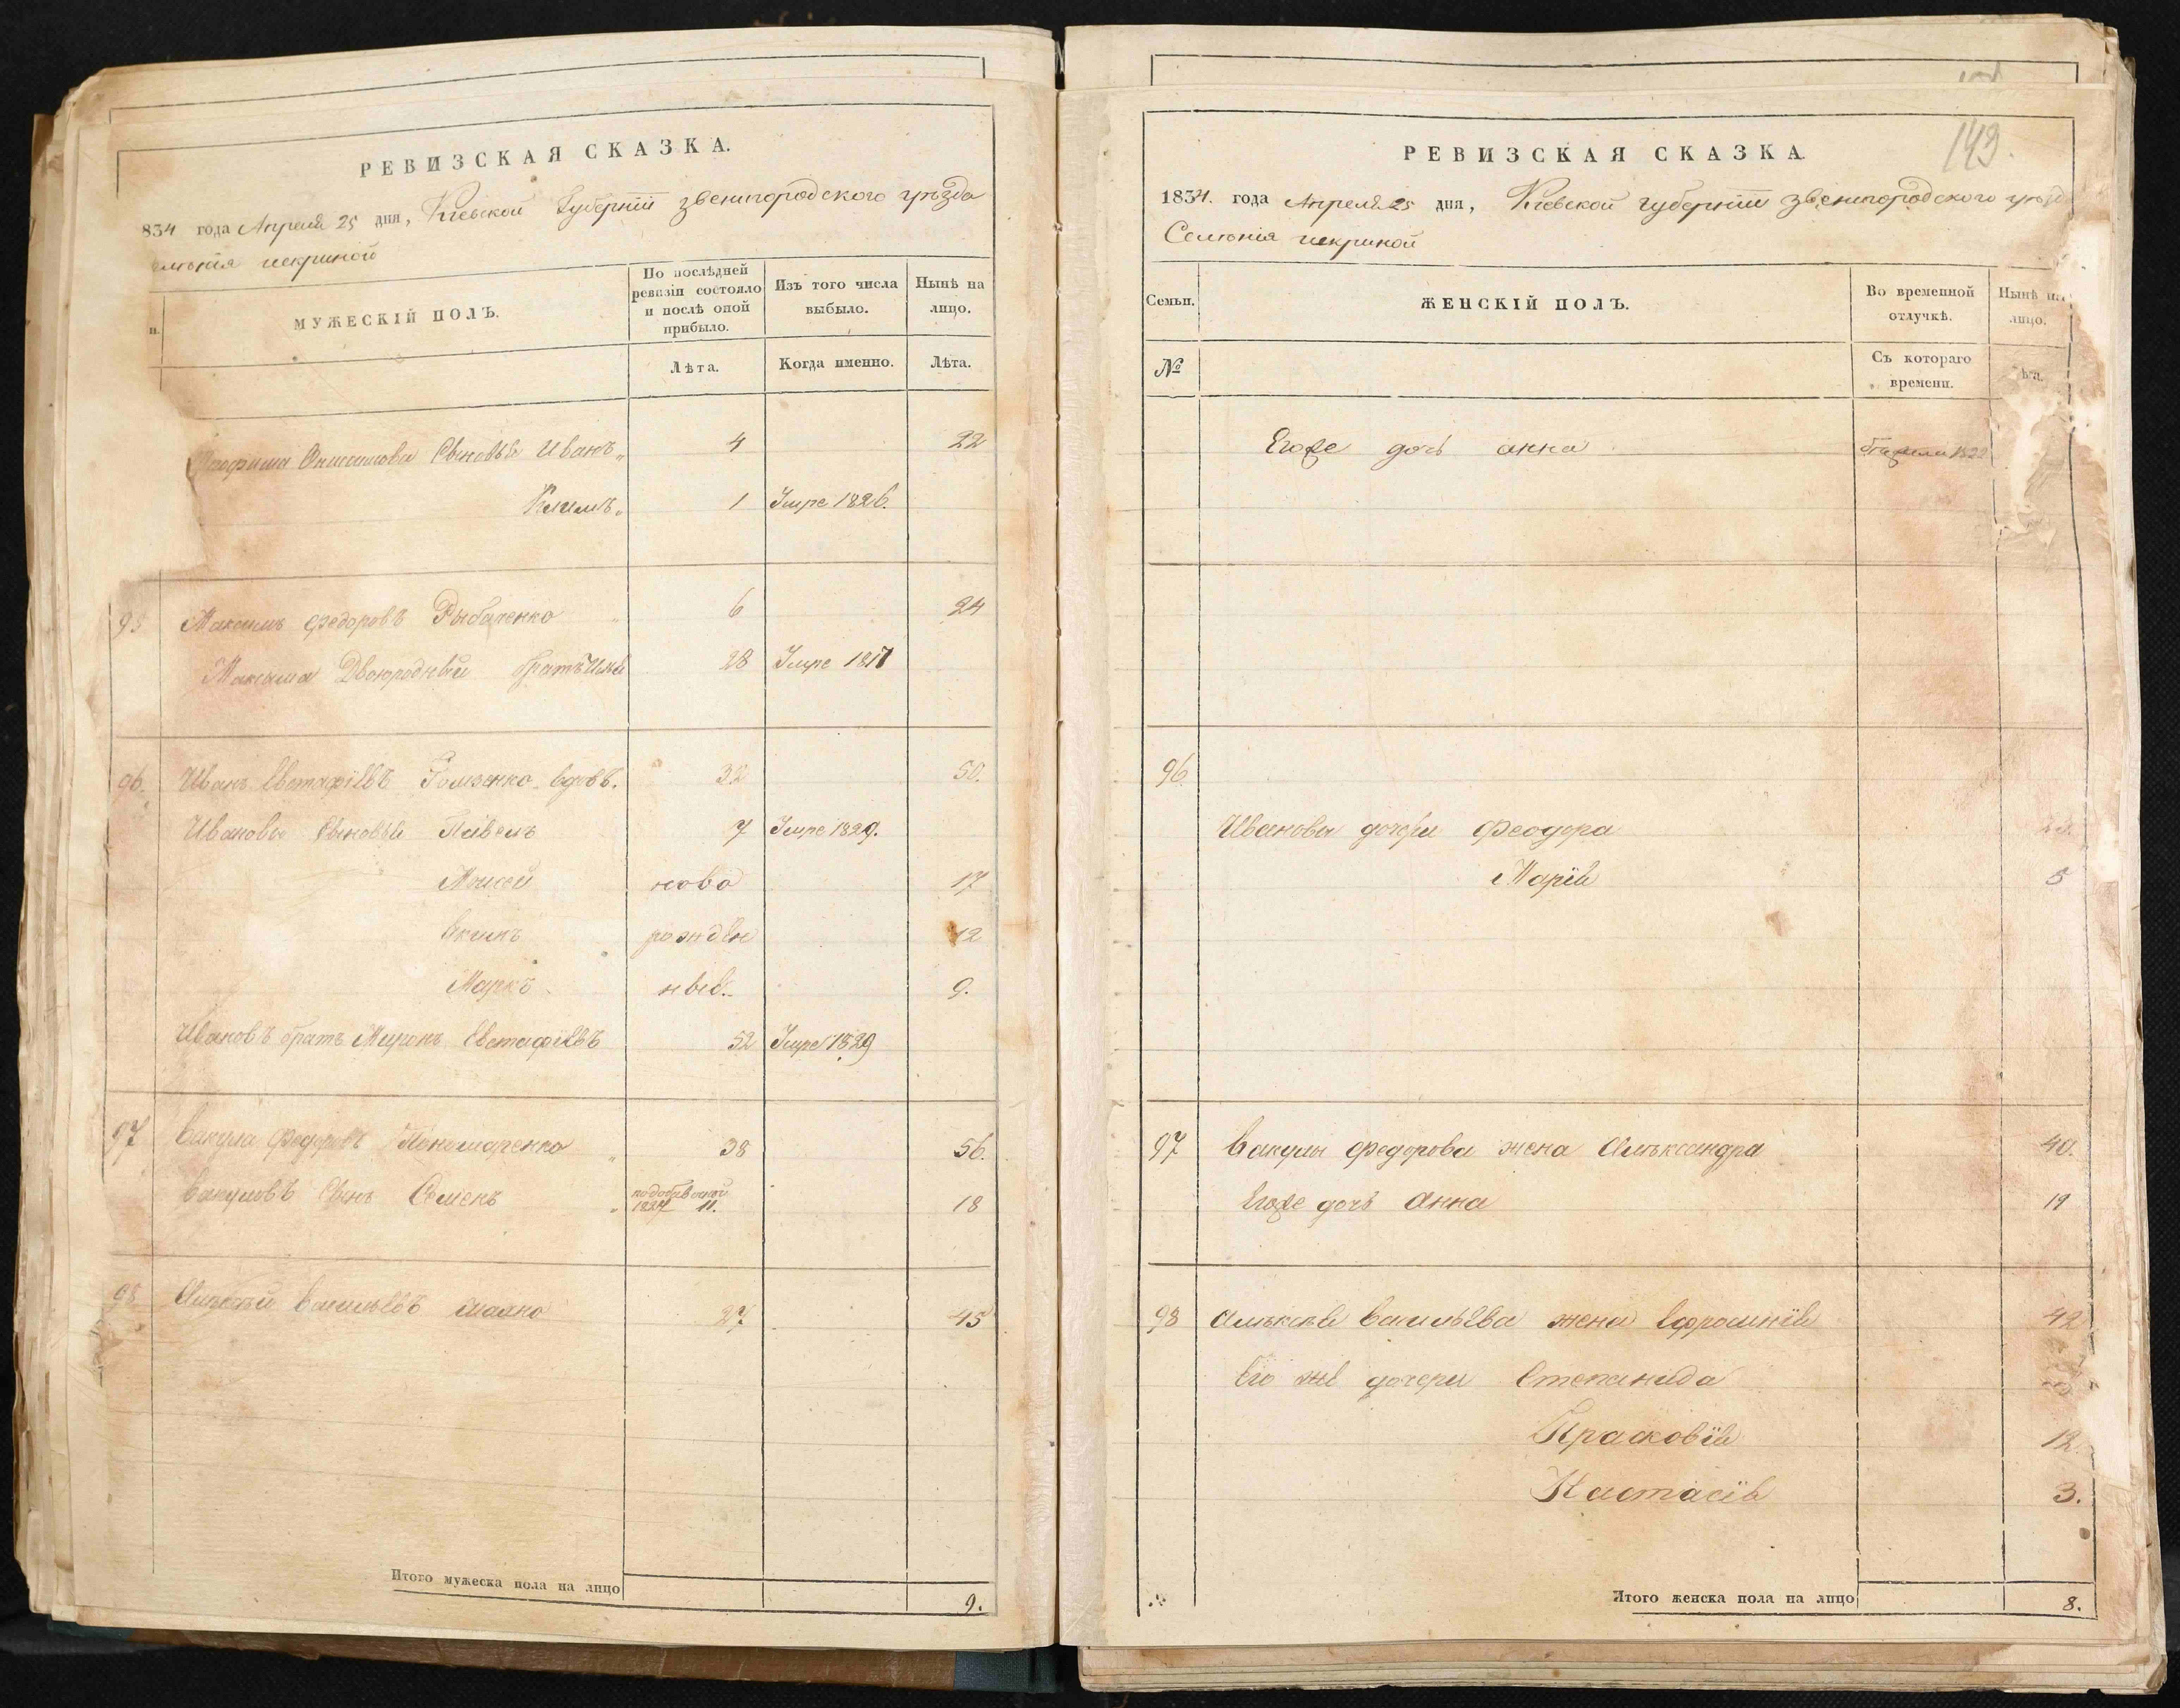 РЕВИЗСКАЯ СКАЗКА.
834 года Апреля 25 дня, Кіевской Губерніи звенигородского уѣзда
еленія искриной
МУЖЕСКІЙ ПОЛЪ.
По послѣдней ревизіи состояло и послѣ оной прибыло.
Изъ того числа выбыло.
Нынѣ на лицо.
Лѣта.
Когда именно.
Лѣта.
Сыновья Иванъ 4 22
Климъ 1 Умре 1826.
95 Максимъ Федоровъ Рыбаченко 6 24
Максима Двоюродный братъ 28 Умре 1817
96. Иванъ Евстафіевъ вдовъ. 32 50.
Ивановы Сыновья Павелъ 7 Умре 1829.
Моисей ново 17
Акимъ рожден 12
Маркъ ные. 9.
Ивановъ братъ Миронъ Евстафіевъ 52 Умре 1829
97 Вакула Федоровъ Пономаренко 38 56.
Вакуловъ Сынъ Семенъ 11. 18
98 Алексѣй Васильевъ 27 45
Итого мужеска пола на лицо 9.
143.
РЕВИЗСКАЯ СКАЗКА.
1834. года Апреля 25 дня, Кіевской губерніи звенигородского уѣзд
Селенія искриной
Семьи.
ЖЕНСКІЙ ПОЛЪ.
Во временной отлучкѣ.
Нынѣ на лицо.
№
Съ котораго времени.
ѣта.
Егоже дочь анна
96.
Ивановы дочери Феодора
Марія 5
97 Вакулы Федорова жена Александра 40.
Егоже дочь Анна 19
98 Алексѣя Васильева жена Ефросинія 42
Его же дочери Степанида
Прасковія 12.
Настасія 3.
Итого женска пола на лицо 8.